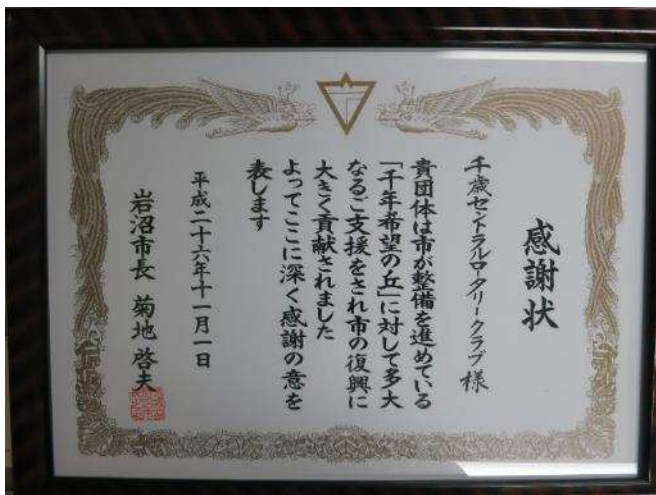 感謝状
千歳セントラルロータリークラブ 様
貴団体は市が整備を進めている
「千年希望の丘」に対して多大
なるご支援をされ市の復興に
大きく貢献されました
よってここに深く感謝の意を
表します
平成二十六年十一月一日
岩沼市長 菊地啓夫